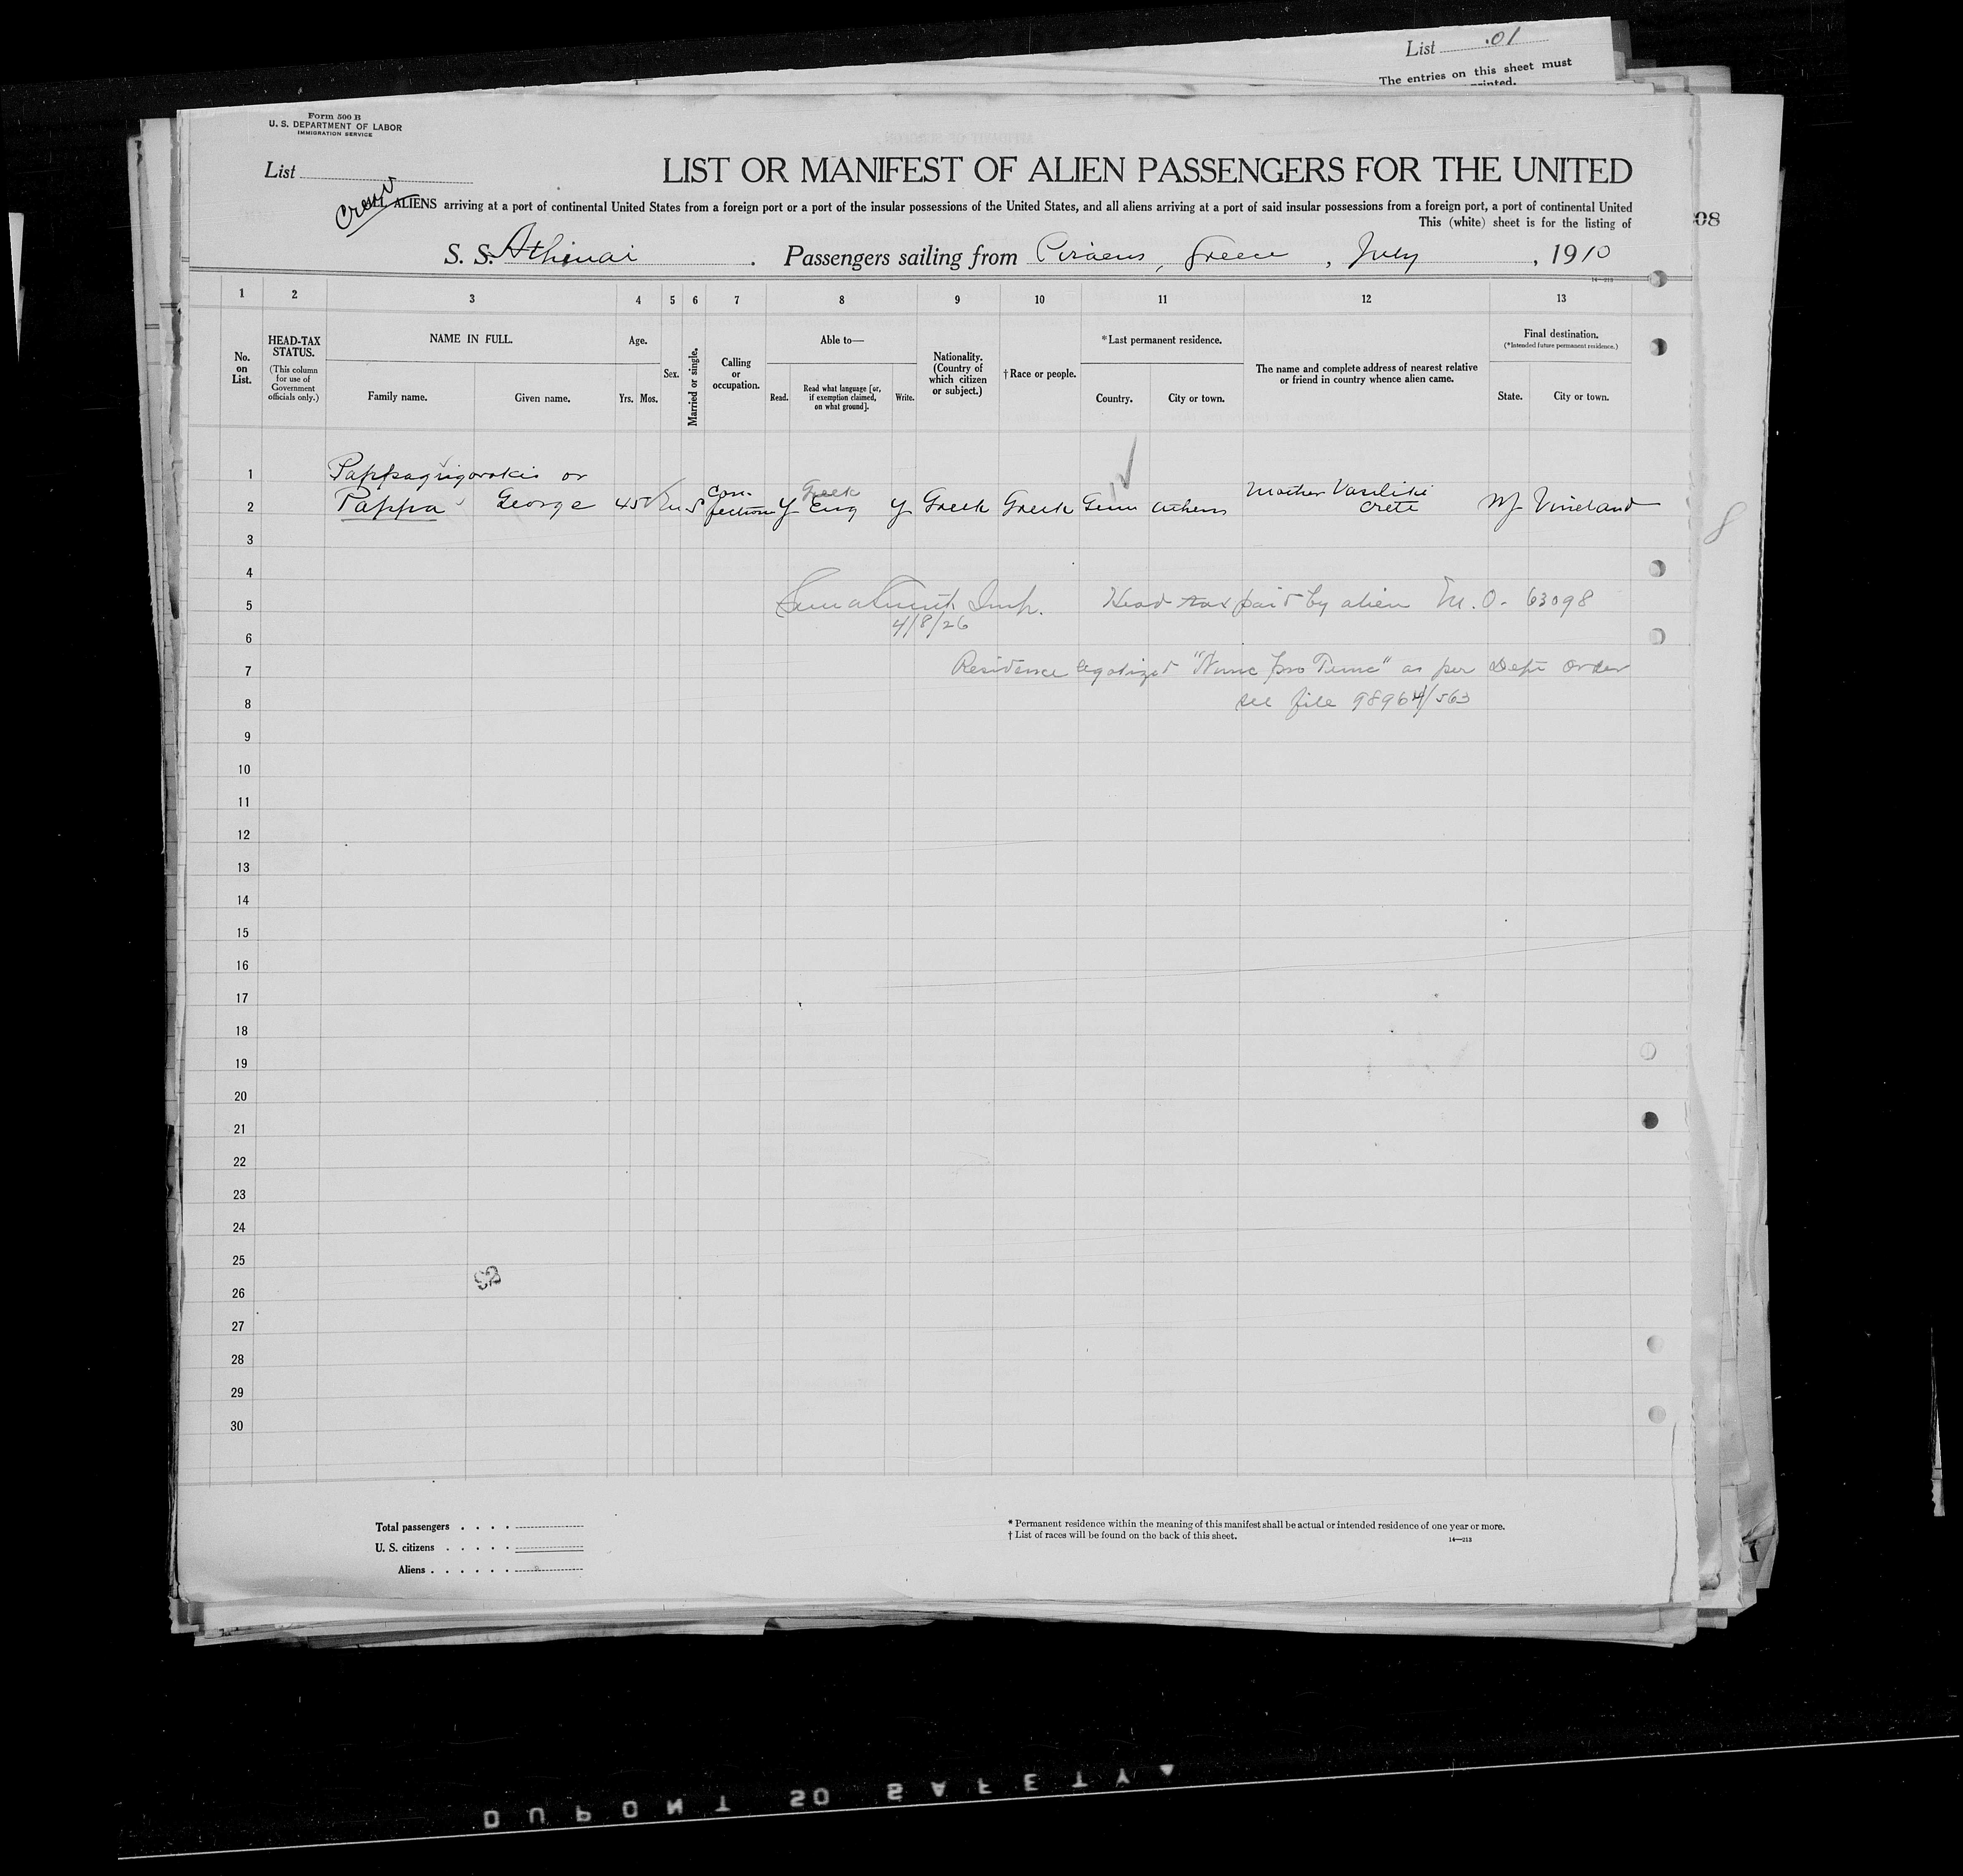 List .01
The entries on this sheet must
printed.
Form 500 B
U. S. DEPARTMENT OF LABOR
IMMIGRATION SERVICE
List
LIST OR MANIFEST OF ALIEN PASSENGERS FOR THE UNITED
Crew
ALL ALIENS arriving at a port of continental United States from a foreign port or a port of the insular possessions of the United States, and all aliens arriving at a port of said insular possessions from a foreign port, a port of continental United
This (white) sheet is for the listing of
08
S. S. Athinai . Passengers sailing from Piraeus, Greece , July , 1910
14—213
1 2 3 4 5 6 7 8 9 10 11 12 13
No. on List.
HEAD-TAX STATUS.
(This column for use of Government officials only.)
NAME IN FULL.
Family name. Given name.
Age.
Yrs. Mos.
Sex.
Married or single.
Calling or occupation.
Able to—
Read. Read what language [or, if exemption claimed, on what ground]. Write.
Nationality. (Country of which citizen or subject.)
† Race or people.
* Last permanent residence.
Country. City or town.
The name and complete address of nearest relative or friend in country whence alien came.
Final destination.
(* Intended future permanent residence.)
State. City or town.
1 Pappagrigorakis or
2 Pappa George 45 m S Con- fection y Greek Eng y Greek Greek Athens Mother Vasiliki Crete NJ Vineland
8
3
4
5 Insp. Head tax paid by alien M.O. 63098
4/8/26
6
7 Residence legalized "Nunc pro Tunc" as per Dept order
8 see file 98964/563
9
10
11
12
13
14
15
16
17
18
19
20
21
22
23
24
25
26
27
28
29
30
Total passengers . . . .
U. S. citizens . . . . .
Aliens . . . . . .
* Permanent residence within the meaning of this manifest shall be actual or intended residence of one year or more.
† List of races will be found on the back of this sheet.
14—213
DUPONT SAFETY